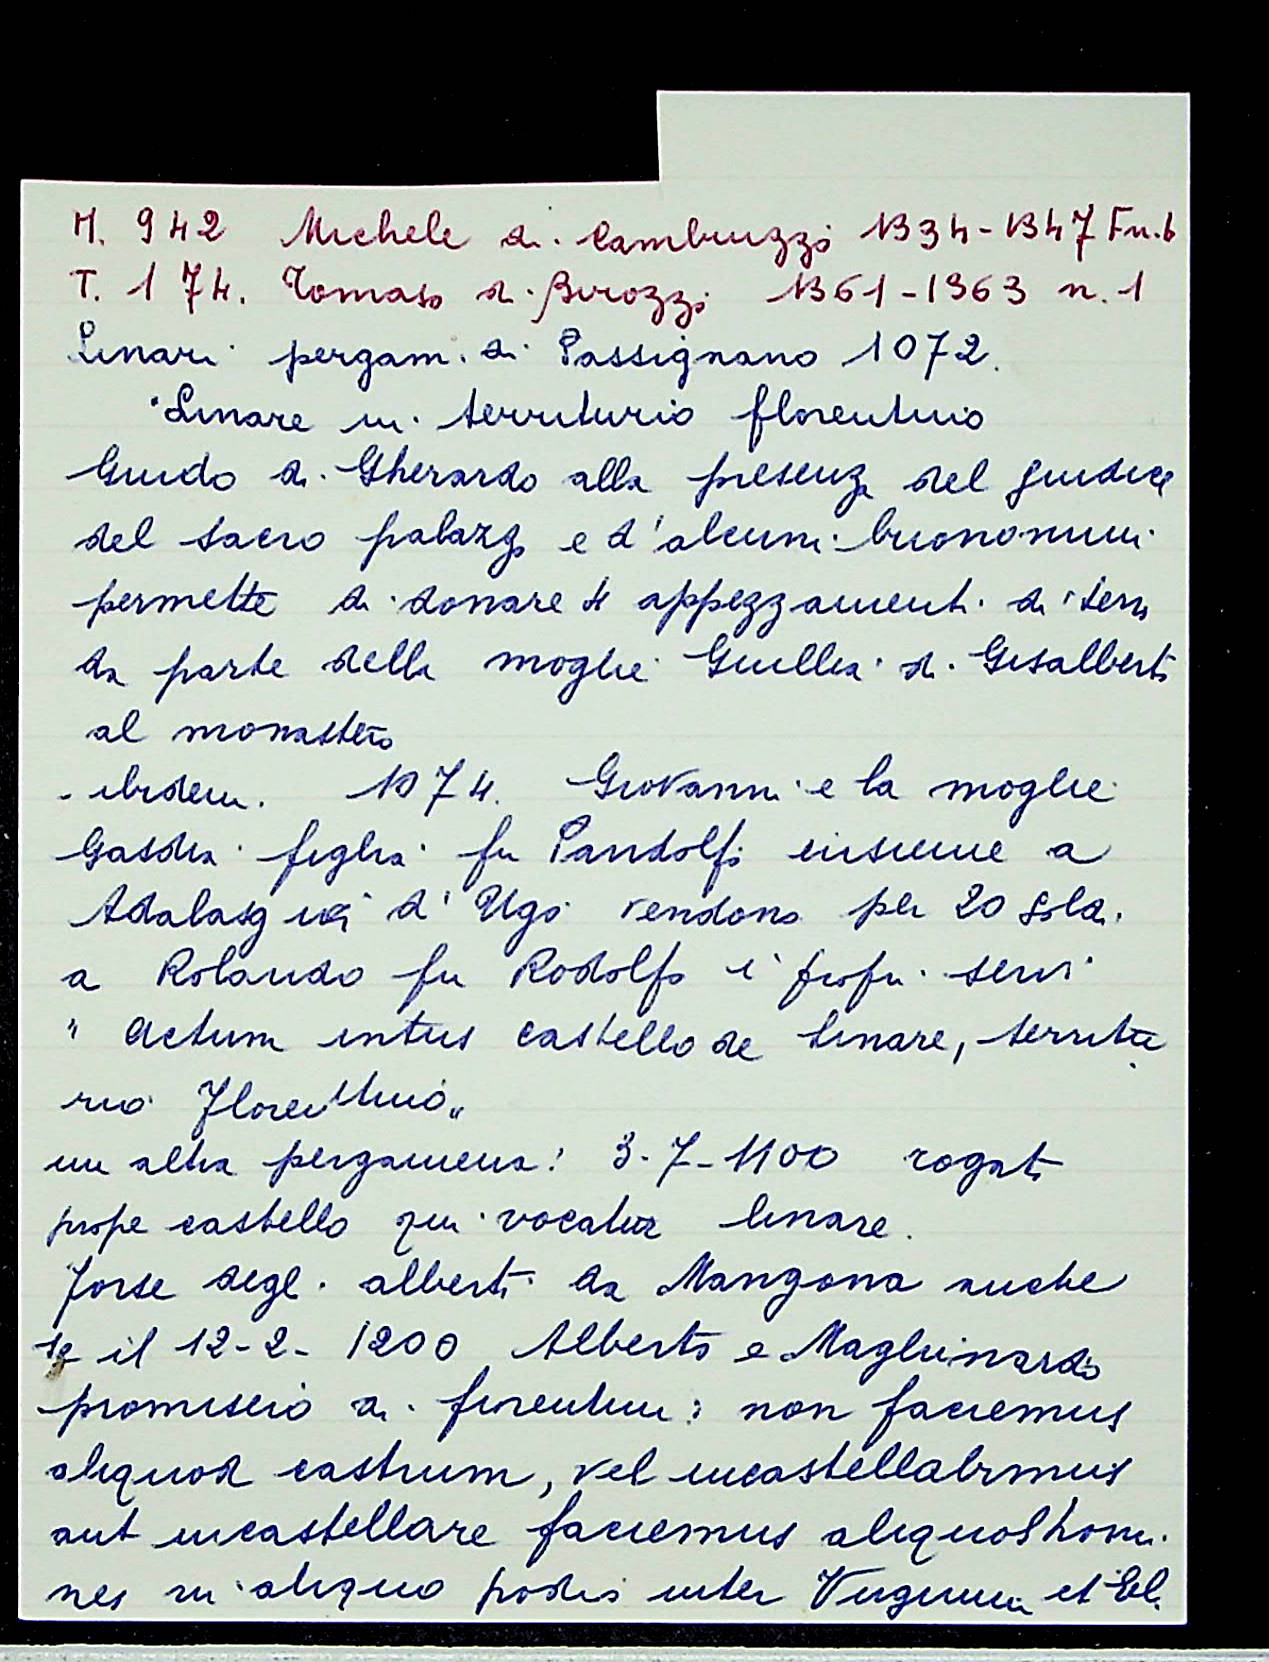 M. 942 Michele di Cambiuzzi 1334-1347 F n. 6
T. 174. Tomaso di Birozzi 1361-1363 n. 1
Linari pergam. di Passignano 1072.
"Linare in territurio florentino
Guido di Gherardo alla presenza del giudice
del sacro palazzo e d'alcuni buonomini
permette di donare 4 appezzamenti di terra
da parte della moglie Guillia di Gisalberto
al monastero
- ibidem. 1074. Giovanni e la moglie
Gasdia figlia fu Pandolfo insieme a
d'Ugo vendono per 20 soldi
a Rolando fu Rodolfo i propri servi
" Actum intus castello de Linare, territu
rio Florentino"
un altra pergamena: 3-7-1100 rogato
prope castello qui vocatur Linare.
Forse degli Alberti da Mangona anche
se il 12-2-1200 Alberto e Maghinardo
promiscio ai fiorentini: non faciemus
aliquod castrum, vel incastellabimus
aut incastellare faciemus aliquos homi
nes in aliquo podio inter Virginiam et El.